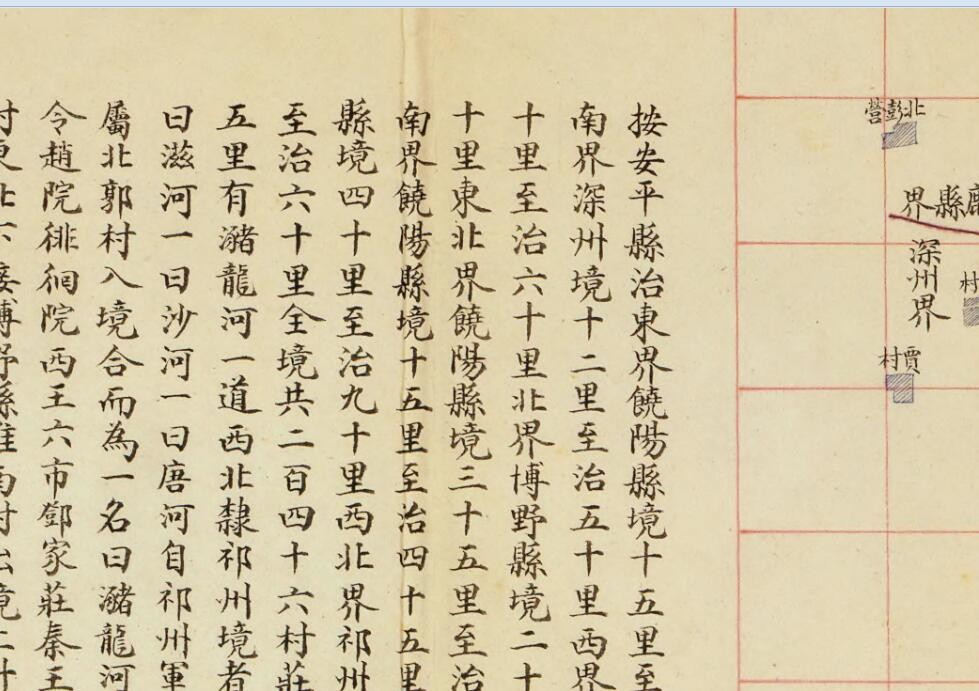 縣界
村
北彭營
深州界
賈村
按安平縣治東界饒陽縣境十五里至
南界深州境十二里至治五十里西界
十里至治六十里北界博野縣境二十
十里東北界饒陽縣境三十五里至治
南界饒陽縣境十五里至治四十五里
縣境四十里至治九十里西北界祁州
至治六十里全境共二百四十六村莊
五里有瀦龍河一道西北隸祁州境者
曰滋河一曰沙河一曰唐河自祁州軍
屬北郭村入境合而為一名曰瀦龍河
令趙院徘徊院西王六市鄧家莊秦王